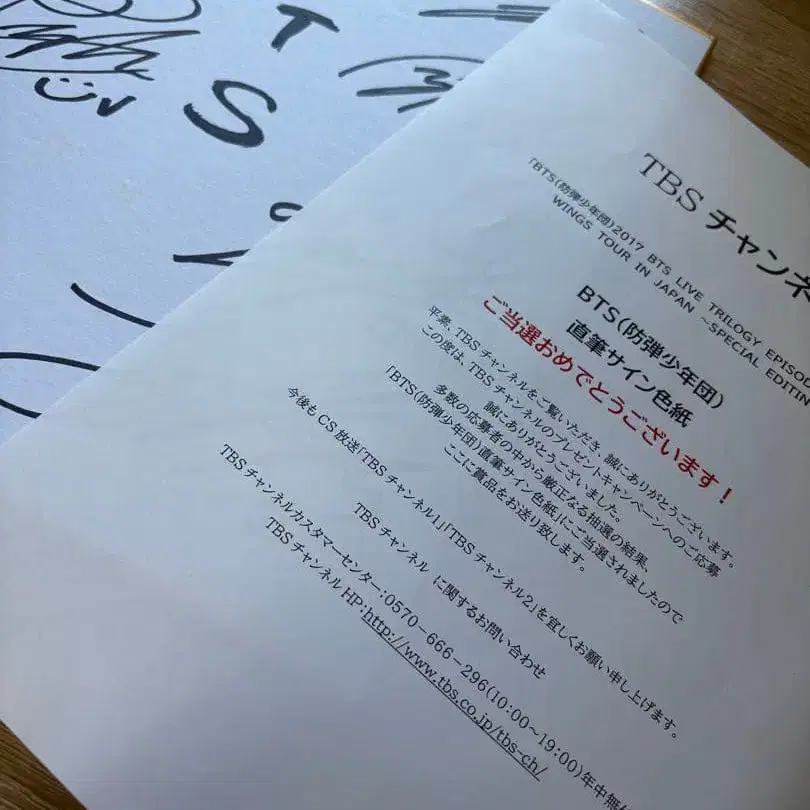 T
S
TBS チャンネ
「BTS(防弾少年団)2017 BTS LIVE TRILOGY EPISOD
WINGS TOUR IN JAPAN ~SPECIAL EDITIN
BTS(防弾少年団)
直筆サイン色紙
ご当選おめでとうございます!
平素、TBSチャンネルをご覧いただき、誠にありがとうございます。
この度は、TBSチャンネルのプレゼントキャンペーンへのご応募
誠にありがとうございました。
多数の応募者の中から厳正なる抽選の結果、
「BTS(防弾少年団)直筆サイン色紙」にご当選されましたので
ここに賞品をお送り致します。
今後も CS 放送「TBS チャンネル1」「TBS チャンネル2」を宜しくお願い申し上げます。
TBS チャンネル に関するお問い合わせ
TBS チャンネルカスタマーセンター:0570-666-296(10:00~19:00)年中無休
TBS チャンネル HP:http://www.tbs.co.jp/tbs-ch/